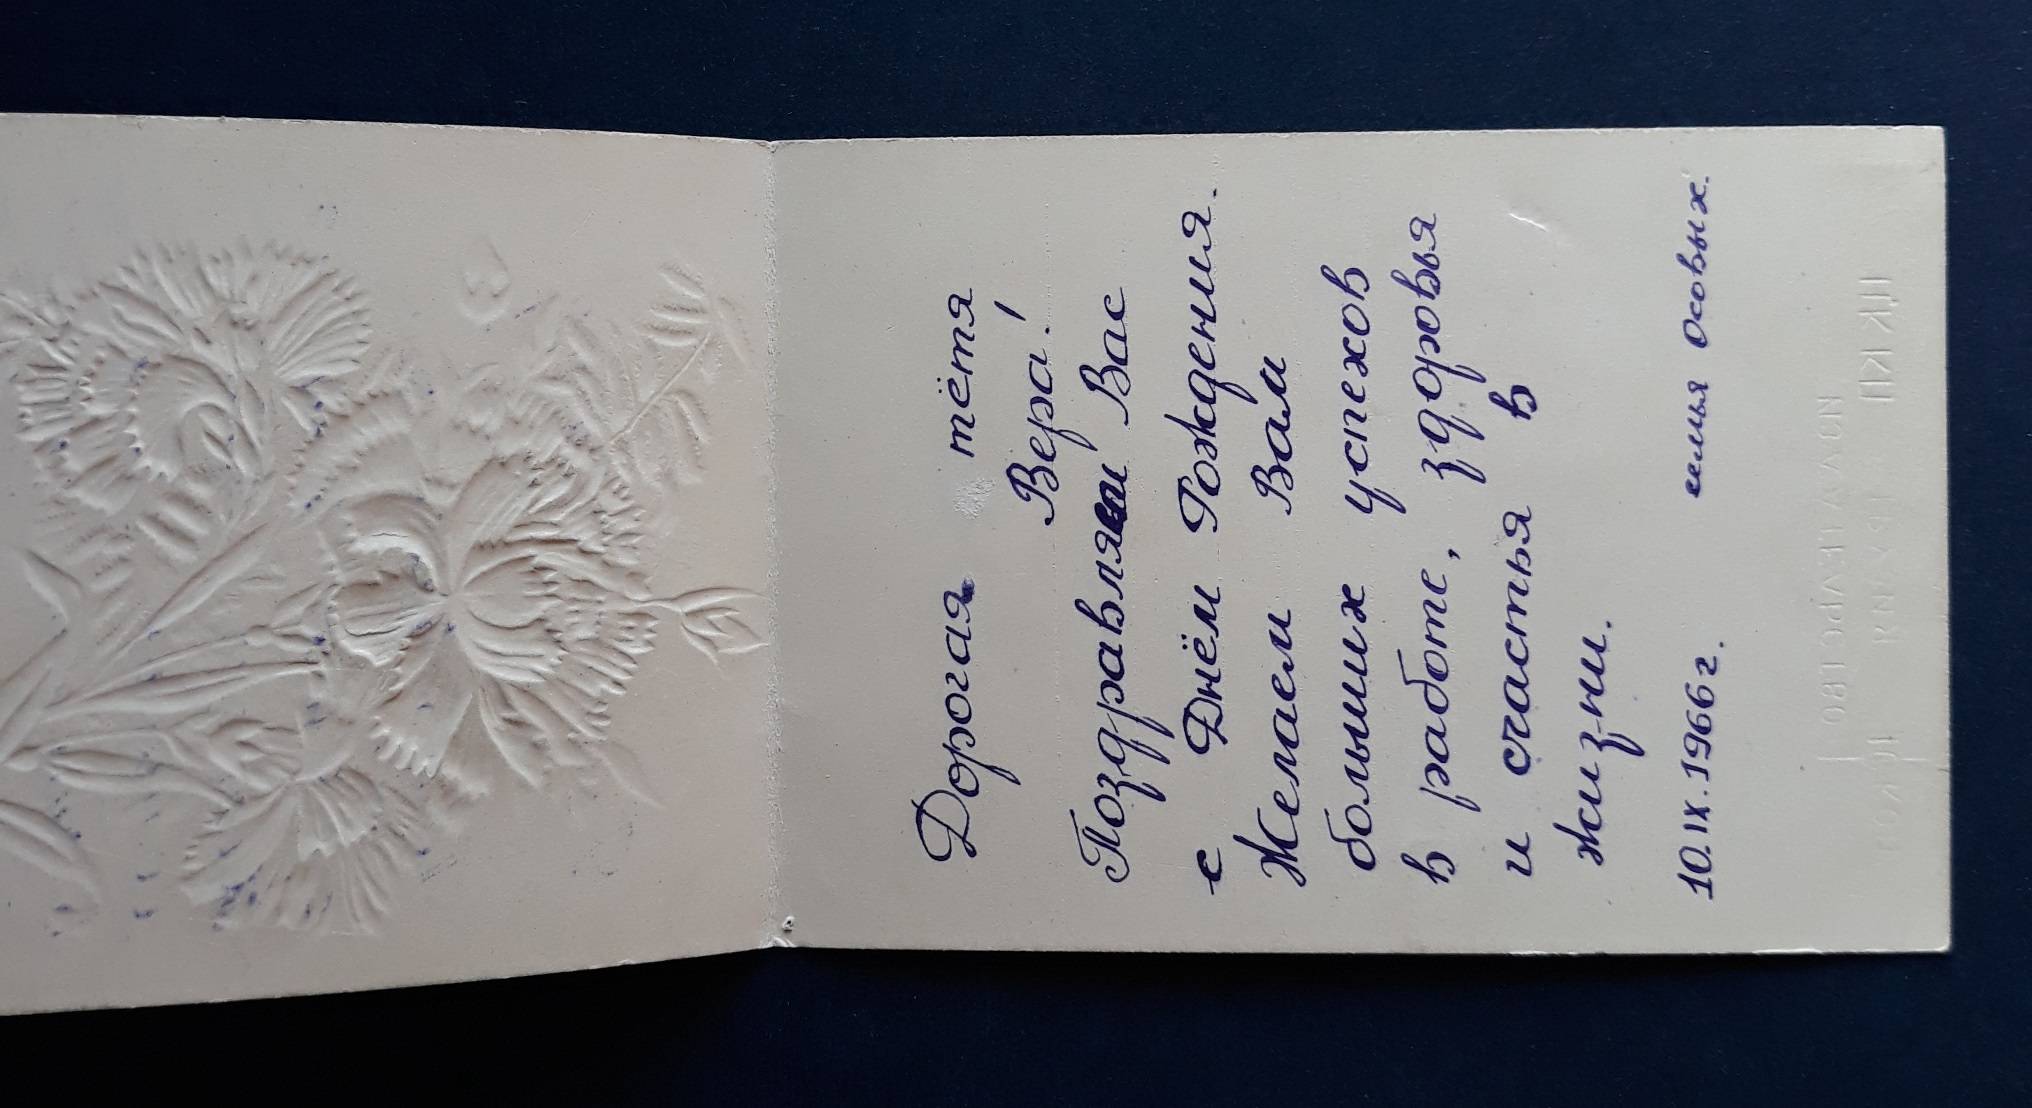 Дорогая тётя
Вера!
Поздравляем Вас
с Днём Рождения.
Желаем Вам
больших успехов
в работе, здоровья
и счастья в
жизни.
10.IX.1966г. семья Осовых.